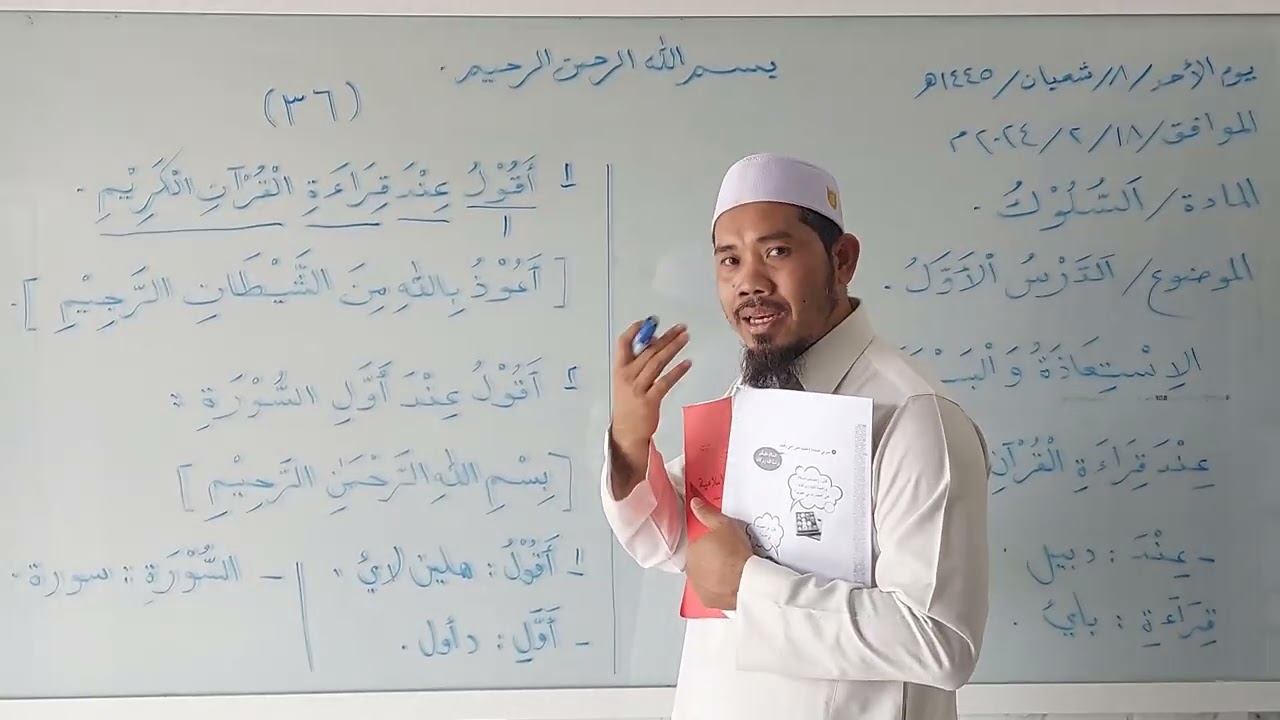 بسم الله الرحمن الرحيم.
يوم الأحد/٨/شعبان/١٤٤٥هـ
الموافق/١٨/٢/٢٠٢٤م
المادة/اَلسُّلُوْكُ.
الموضوع/اَلدَّرْسُ اْلأَوَّلُ.
الاِسْتِعَاذَةُ وَالْبَسْ
عِنْدَ قِرَاءَةِ الْقُرْآنِ
- عِنْدَ : دبيل
قِرَاءَةِ : باي .
(٣٦)
١ أَقُوْلُ عِنْدَ قِرَاءَةِ الْقُرْآنِ الْكَرِيْمِ.
١
[أَعُوْذُ بِاللهِ مِنَ الشَّيْطَانِ الرَّجِيْمِ].
٢ أَقُوْلُ عِنْدَ أَوَّلِ السُّوْرَةِ :
[بِسْمِ اللهِ الرَّحْمَنِ الرَّحِيْمِ]
١ أَقُوْلُ : هلين لاي .
- أَوَّلِ : دأول .
- السُّوْرَةِ : سورة .